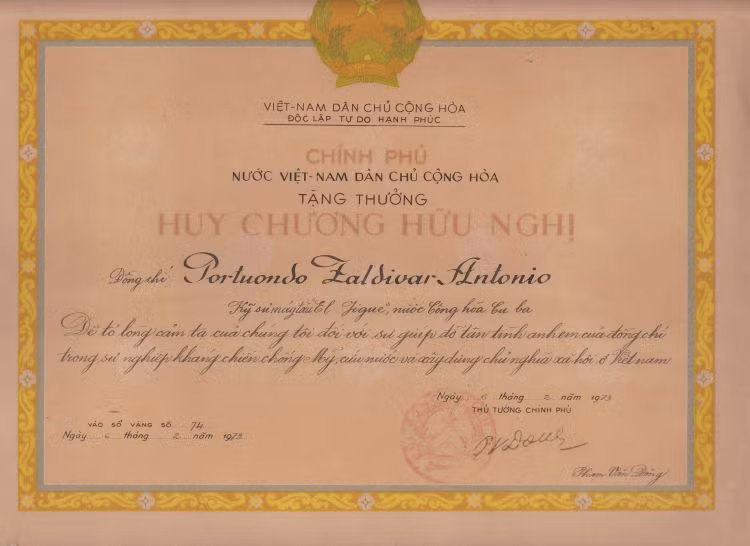 VIỆT-NAM DÂN CHỦ CỘNG HÒA
ĐỘC LẬP TỰ DO HẠNH PHÚC
CHÍNH PHỦ
NƯỚC VIỆT-NAM DÂN CHỦ CỘNG HÒA
TẶNG THƯỞNG
HUY CHƯƠNG HỮU NGHỊ
Đồng chí Portuondo Zaldivar Antonio
Kỹ sư máy tàu "El Jigue", nước Cộng hòa Cu ba
Để tỏ lòng cảm tạ của chúng tôi đối với sự giúp đỡ tận tình anh em của đồng chí
trong sự nghiệp kháng chiến chống Mỹ, cứu nước và xây dựng chủ nghĩa xã hội, ở Việt nam
Ngày 6 tháng 2 năm 1973
THỦ TƯỚNG CHÍNH PHỦ
VÀO SỔ VÀNG SỐ 74
Ngày 6 tháng 2 năm 1973
PVDong
Phạm Văn Đồng